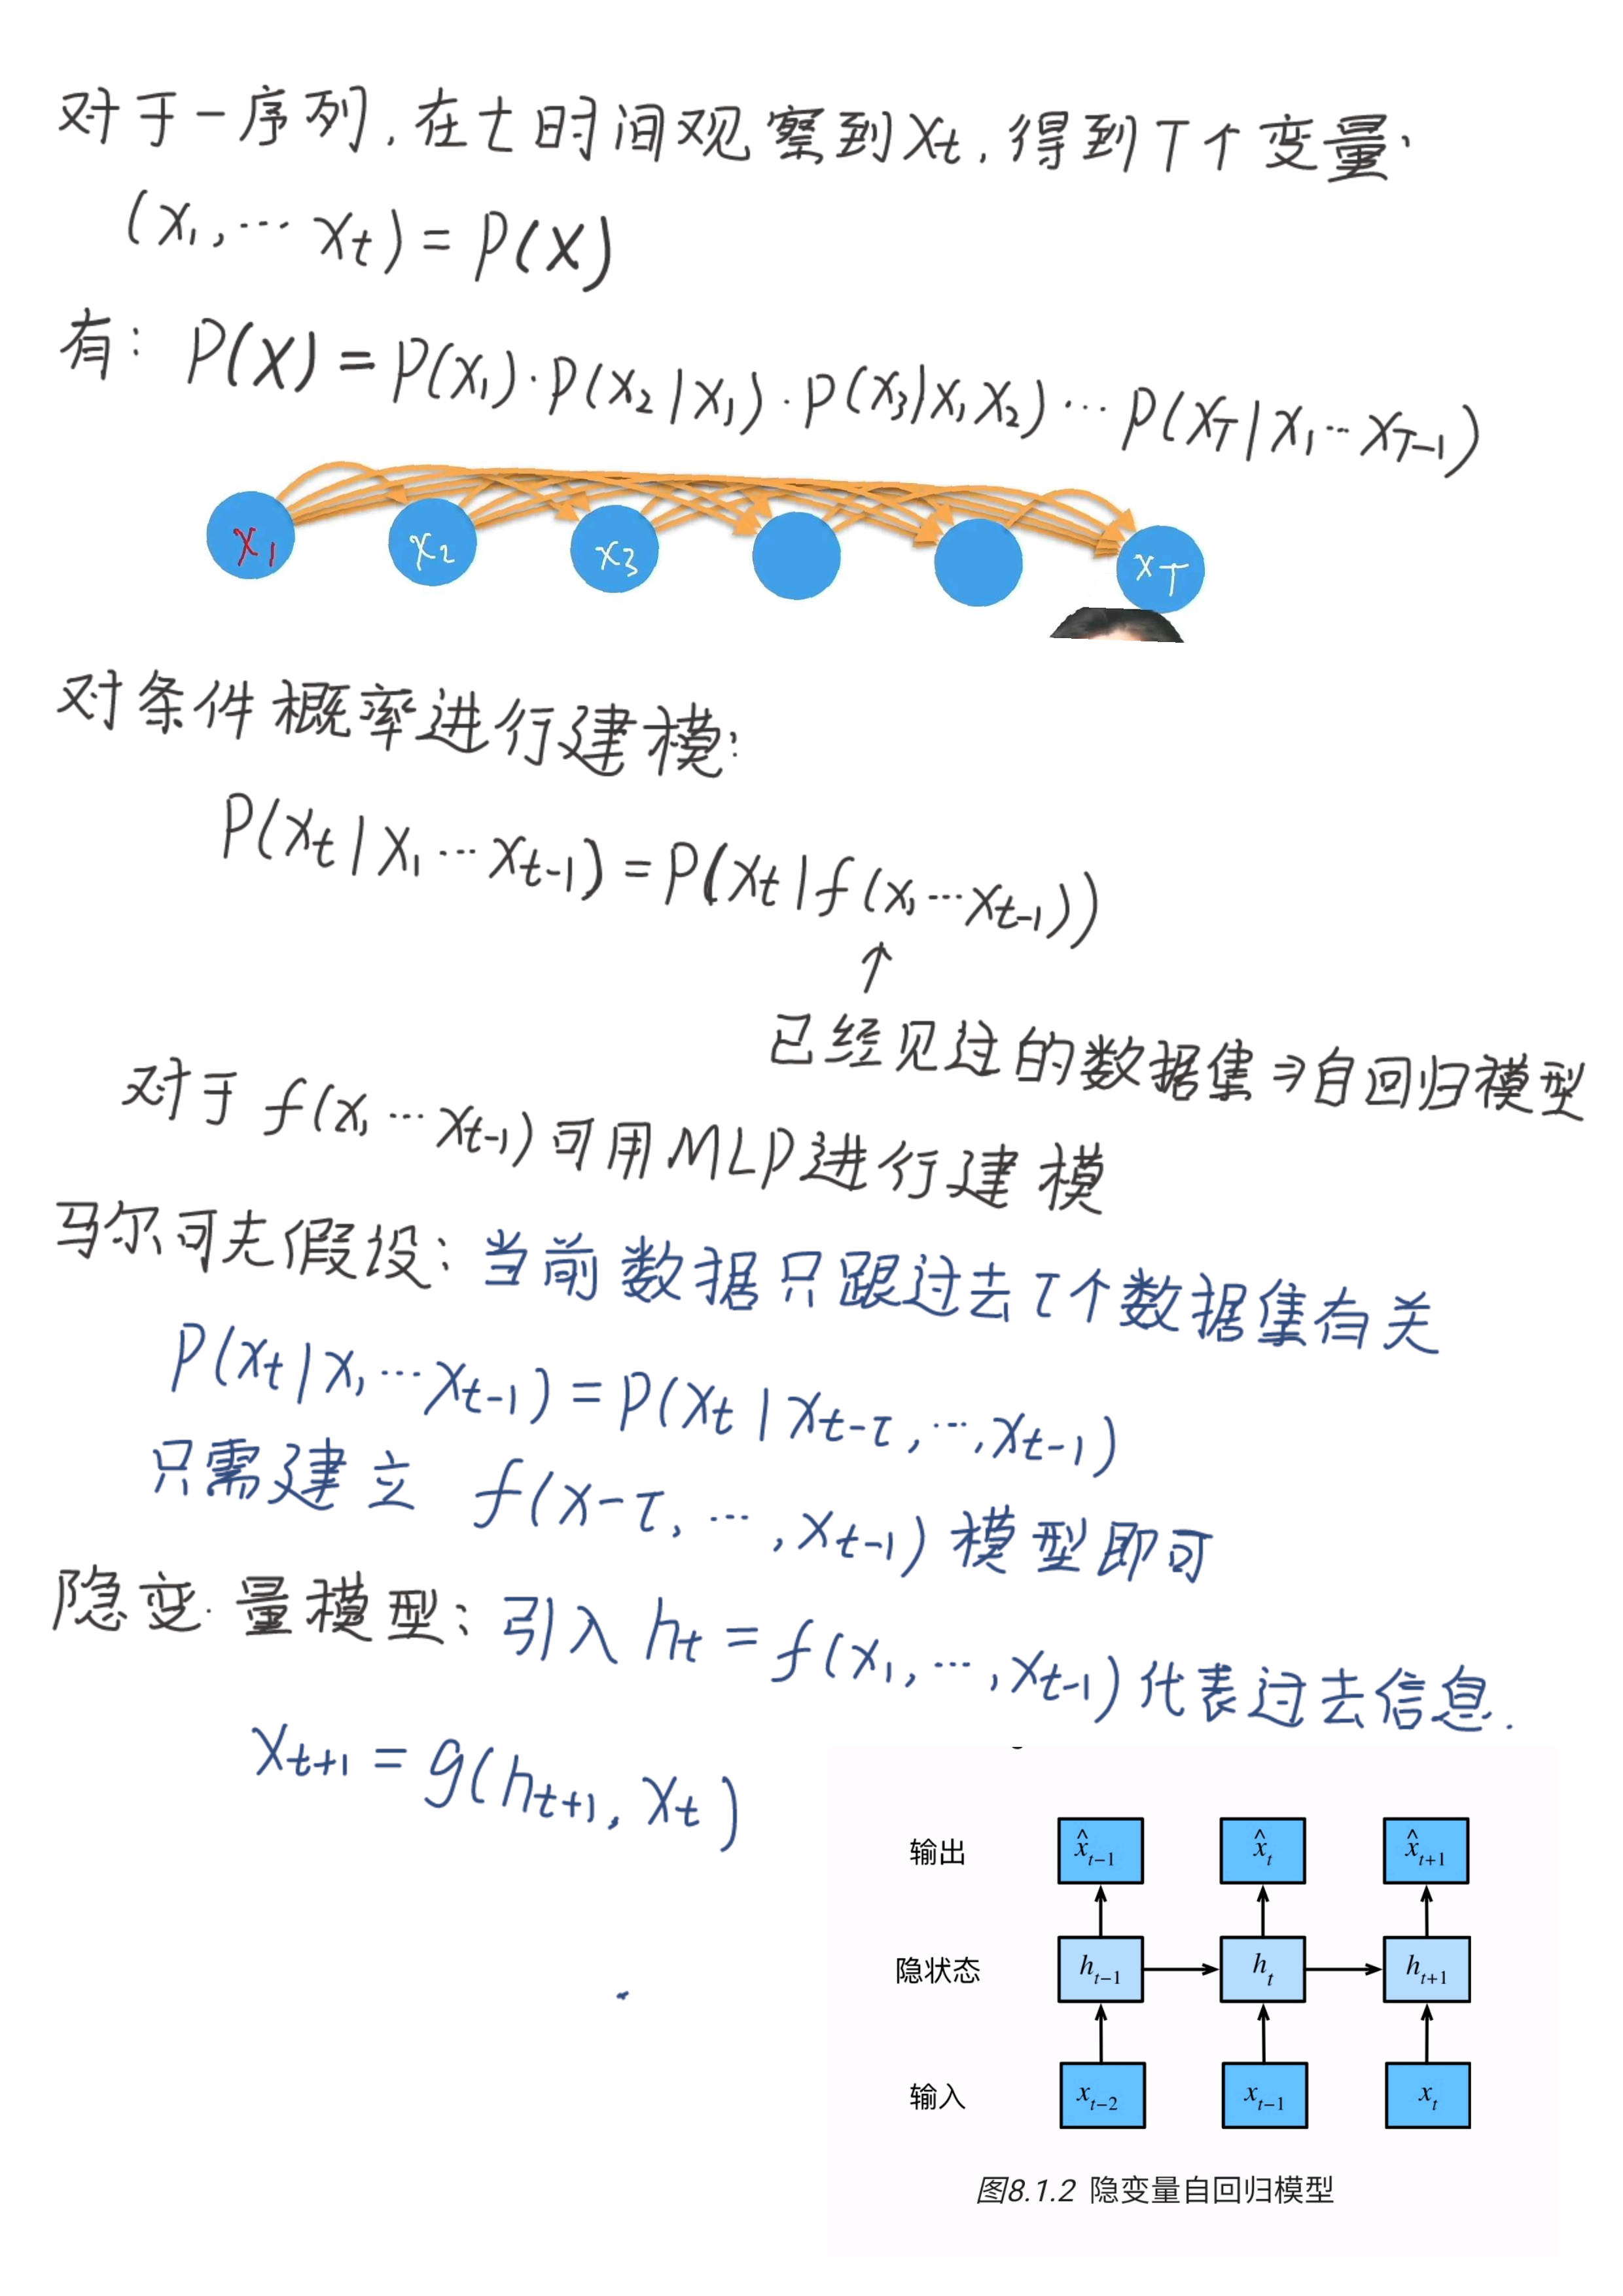 对于一序列,在t时间观察到Xt,得到T个变量,
(X₁,⋯ Xt)=P(X)
有: P(X)=P(X₁)·P(X₂|X₁)·P(X₃|X₁X₂)⋯P(X_T|X₁⋯X_{T-1})
X₁ X₂ X₃ X_T
对条件概率进行建模:
P(Xt|X₁⋯X_{t-1})=P(Xt|f(X₁⋯X_{t-1}))
↑
已经见过的数据集⇒自回归模型
对于f(X₁⋯X_{t-1})可用MLP进行建模
马尔可夫假设:当前数据只跟过去τ个数据集有关
P(Xt|X₁⋯X_{t-1})=P(Xt|X_{t-τ},⋯,X_{t-1})
只需建立 f(X-τ,⋯,X_{t-1})模型即可
隐变量模型:引入ht=f(X₁,⋯,X_{t-1})代表过去信息.
X_{t+1}=g(h_{t+1},Xt)
输出 x̂_{t-1} x̂_t x̂_{t+1}
隐状态 h_{t-1} h_t h_{t+1}
输入 x_{t-2} x_{t-1} x_t
图8.1.2 隐变量自回归模型